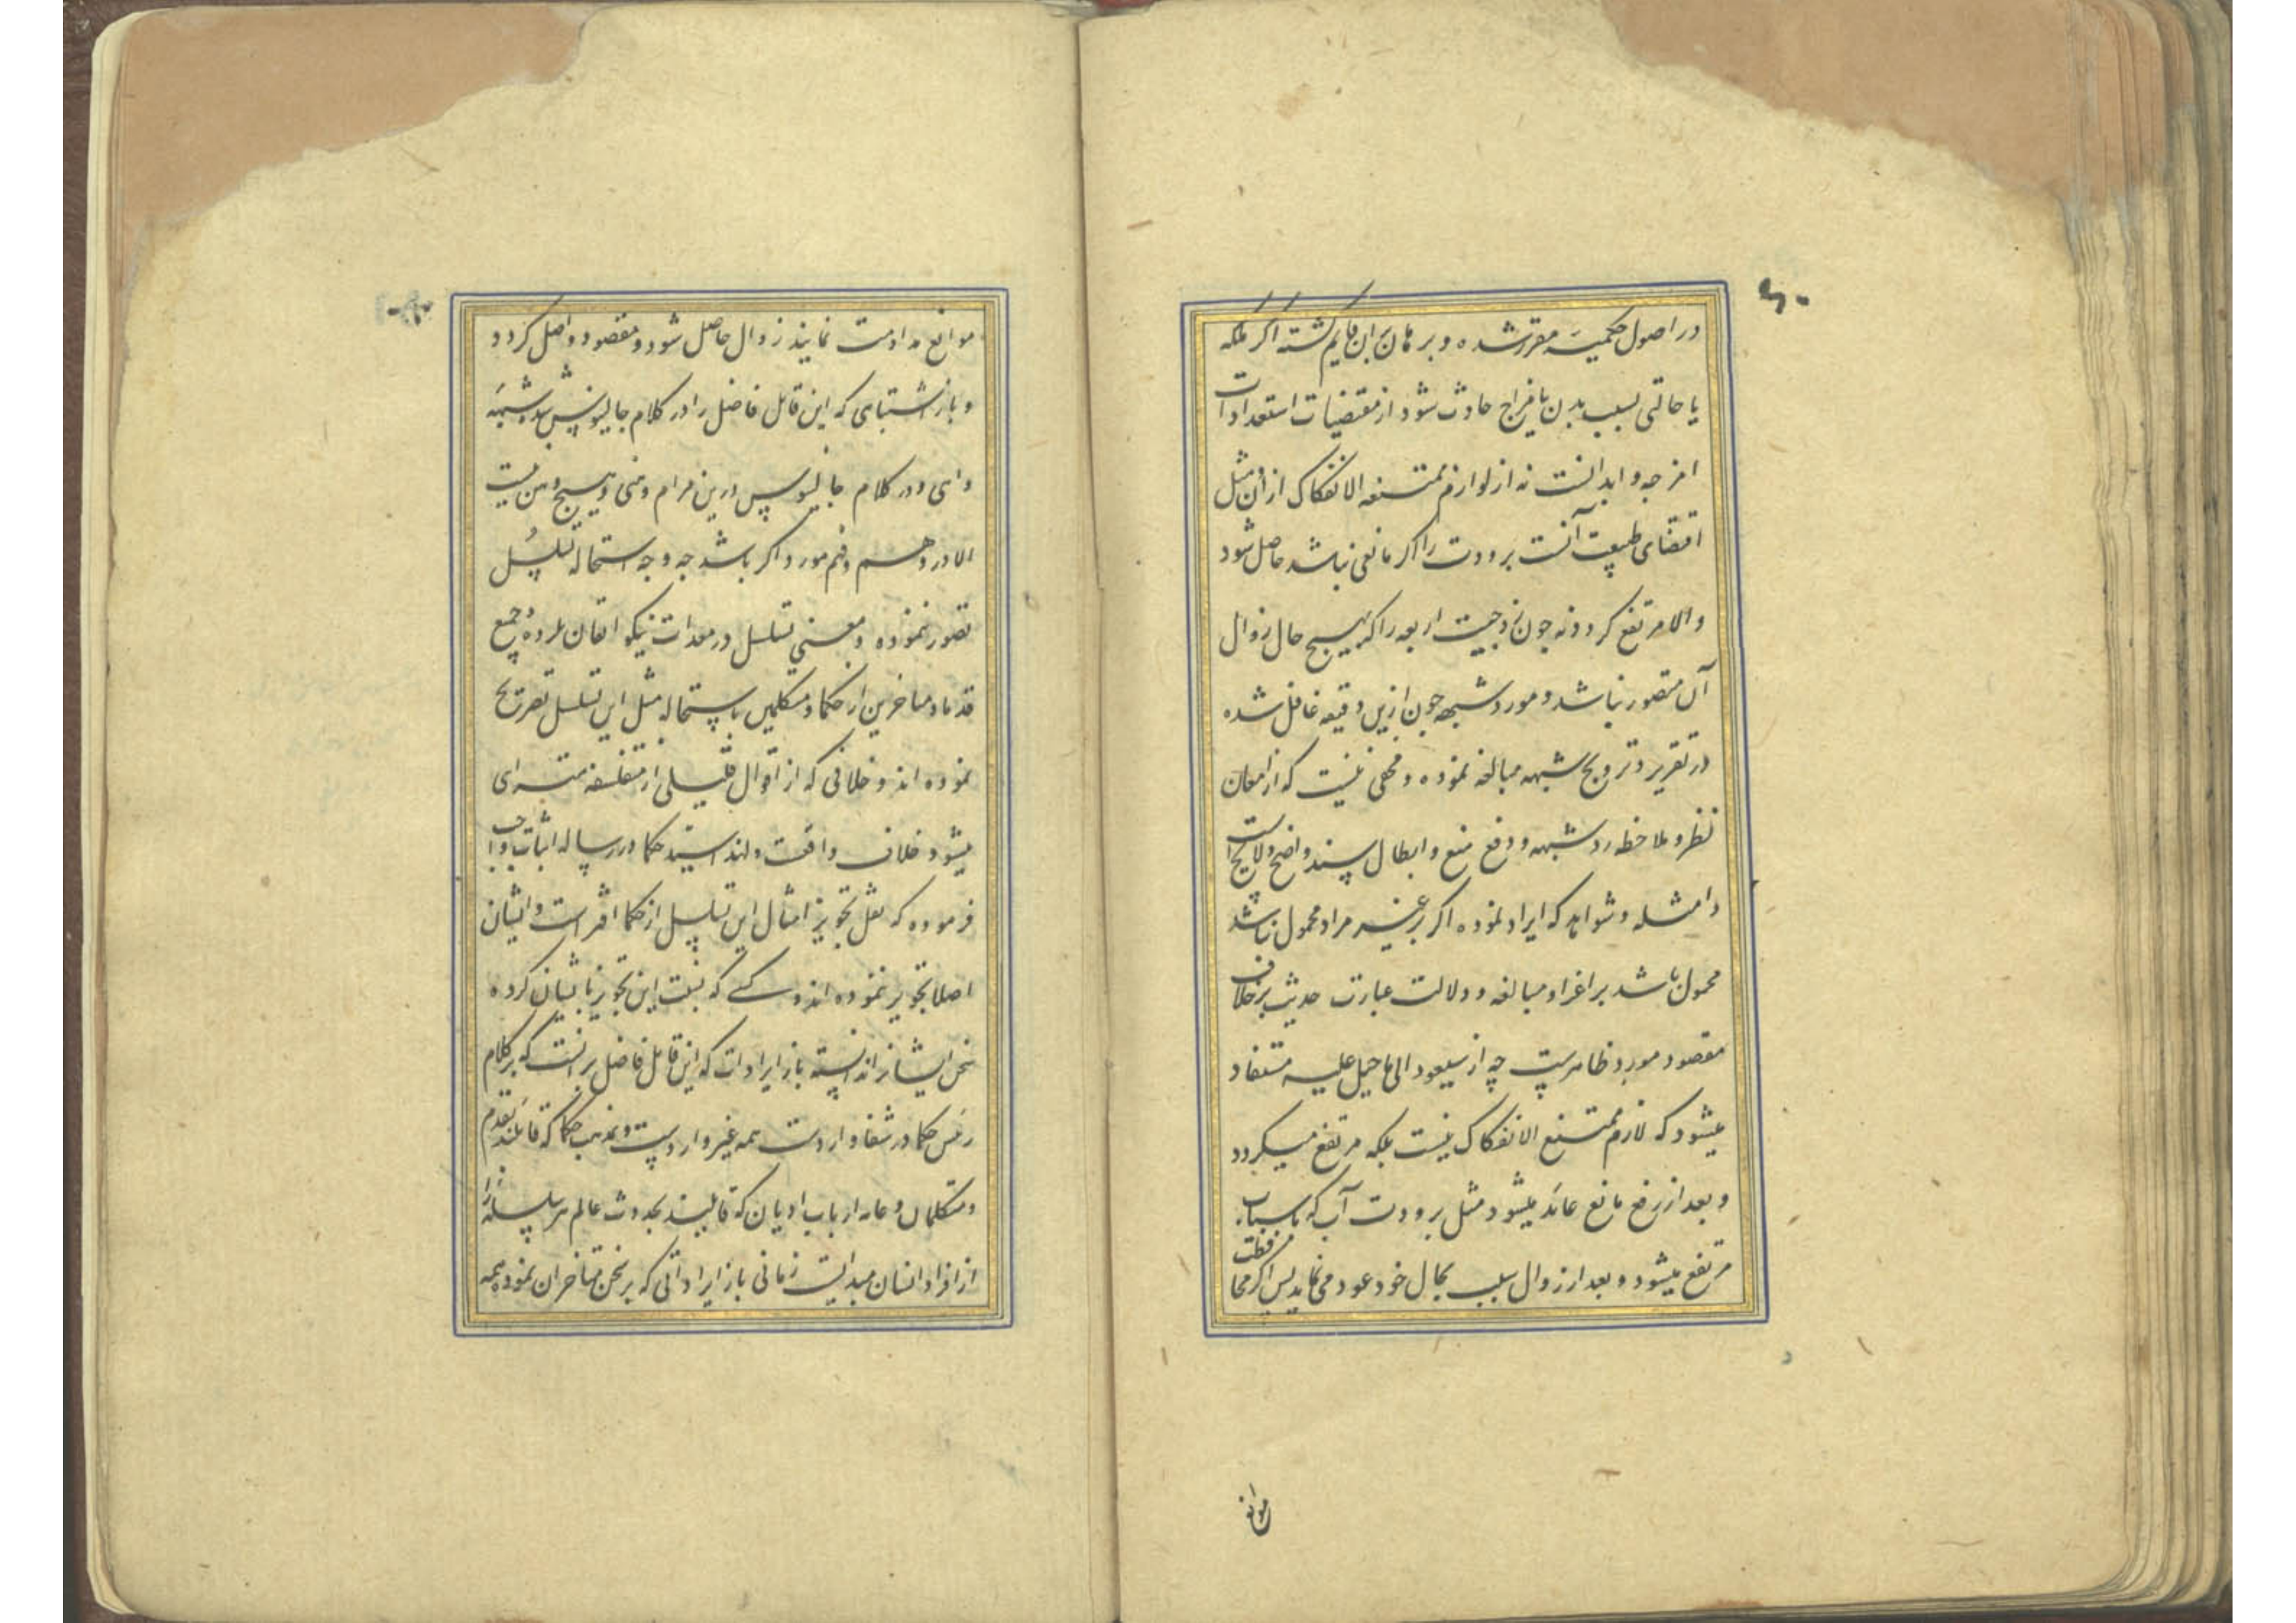 در اصول حکمیه مقرر شده و برهان بران قایم گشته اگر ملکه
یا حالتی بسبب بدن یا مزاج حادث شود از مقتضیات استعدادات
امزجه و ابدانست نه از لوازم ممتنعه الانفکاک ازان مثل
اقتضای طبیعت آنست برودت را اگر مانعی نباشد حاصل شود
والا مرتفع کردد نه جون زوجیت اربعه را که بهیچ حال زوال
آن متصور نباشد و مورد شبهه جون ازین دقیقه غافل شده
در تقریر و ترویج شبهه مبالغه نموده و مخفی نیست که از امعان
نظر و ملاحظه رد شبهه و دفع منع و ابطال سند واضح و لایح است
و امثله و شواهد که ایراد نموده اگر بر غیر مراد محمول نباشد
محمول باشد بر اغراء و مبالغه و دلالت عبارت حدیث بر خلاف
مقصود مورد ظاهرست چه از سیعود الی ما جبل علیه مستفاد
میشود که لازم ممتنع الانفکاک نیست بلکه مرتفع میکردد
و بعد از رفع مانع عائد میشود مثل برودت آب که باسباب
مرتفع میشود و بعد از زوال سبب بحال خود عود می نماید پس اگر محافظت
موانع
موانع مداومت نمایند زوال حاصل شود و مقصود واصل کردد
و باز اشتباهی که این قایل فاضل را در کلام جالینوس شده شبهه
واهی و در کلام جالینوس درین مرام وهنی و هیچ وهن نیست
الا در وهم و فهم مورد اگر باشد چه وجه استحاله تسلسل
تصور ننموده و معنی تسلسل در معدات نیکو اتقان نکرده و جمیع
قدما و متاخرین از حکما و متکلمین باستحاله مثل این تسلسل تصریح
نموده اند و خلافی که از اقوال قلیلی از متفلسفه مترای
میشود خلاف واقعست و لهذا سید حکما در رساله اثبات واجب
فرموده که نقل تجویز امثال این تسلسل از حکما افتراست و ایشان
اصلا تجویز ننموده اند و کسی که نسبت این تجویز بایشان کرده
سخن ایشانرا ندانسته باز ایرادات که این قایل فاضل برانست که بر کلام
رئیس حکما در شفا واردست همه غیر واردست و مذهب حکما که قائلند بقدم
و متکلمان و عامه ارباب ادیان که قائلند بحدوث عالم هر سلسله را
از افراد انسان مبدائیست زمانی باز ایراداتی که بر سخن متاخران نموده همه